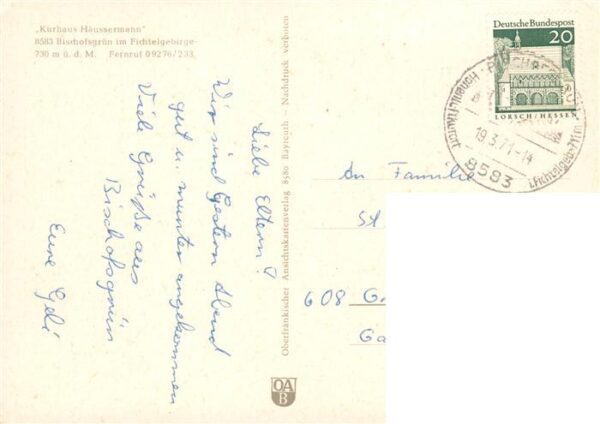 „Kurhaus Häussermann"
8583 Bischofsgrün im Fichtelgebirge
730 m ü. d. M. Fernruf 09276/233
Liebe Eltern!
Wir sind Gestern Abend
gut u. munter angekommen
Viele Grüße aus
Bischofsgrün
Eure Geli
Oberfränkischer Ansichtskartenverlag 8580 Bayreuth — Nachdruck verboten
OA
B
Deutsche Bundespost
20
LORSCH/HESSEN
19.3.71-14
8583
An Familie
St
608 G
Ga